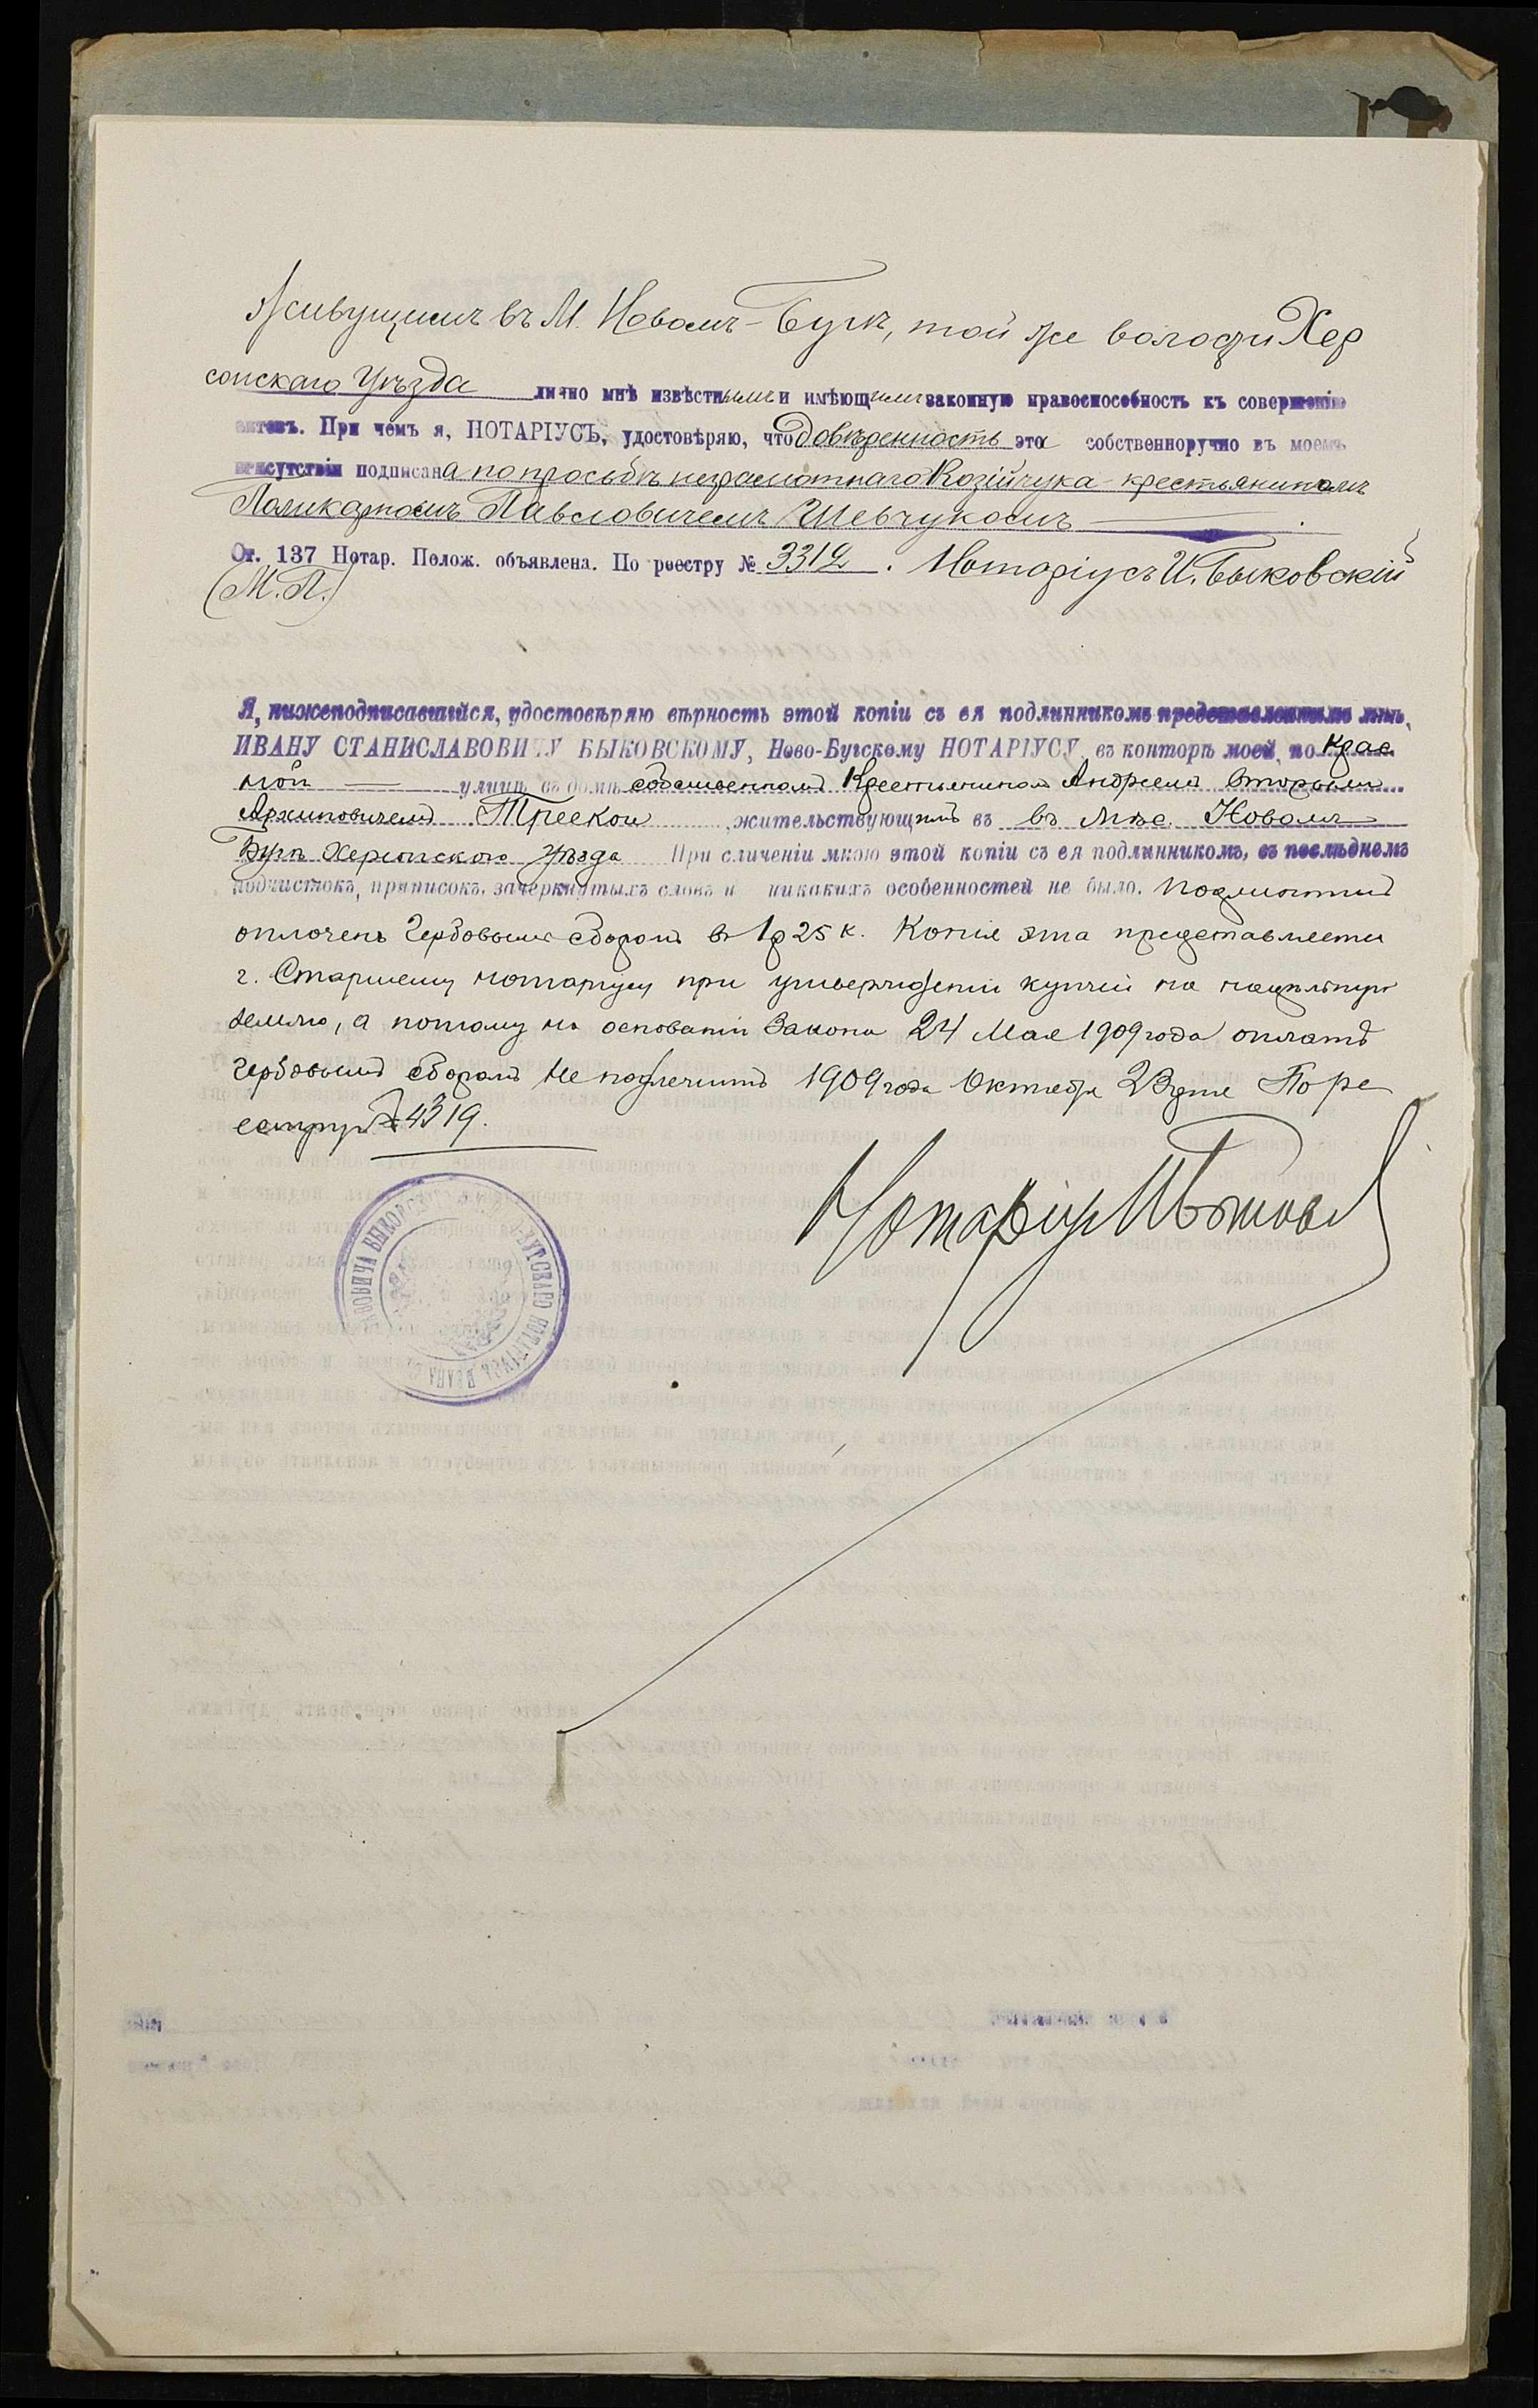 живущимъ въ М. Новомъ-Бугѣ, той же волости Хер
сонскаго Уѣзда лично мнѣ извѣстнымъ и имѣющимъ законную правоспособность къ совершенію
актовъ. При чемъ я, НОТАРІУСЪ, удостовѣряю, что довѣренность эта собственноручно въ моемъ
присутствіи подписана по просьбѣ неграмотнаго Козійчука крестьяниномъ
Поликарпомъ Павловичемъ Шевчукомъ
Ст. 137 Нотар. Полож. объявлена. По реестру № 3312. Нотаріусъ И. Быковскій
(М.П.)
Я, нижеподписавшійся, удостовѣряю вѣрность этой копіи съ ея подлинникомъ представленнымъ мнѣ,
ИВАНУ СТАНИСЛАВОВИЧУ БЫКОВСКОМУ, Ново-Бугскому НОТАРІУСУ въ конторѣ моей, по
ной улицѣ въ домѣ собственномъ Крестьяниномъ Андреемъ Вторымъ
Архиповичемъ жительствующимъ въ въ мѣс. Новомъ
Бугѣ Херсонскаго Уѣзда При сличеніи мною этой копіи съ ея подлинникомъ, въ послѣднемъ
подчистокъ, приписокъ, зачеркнутыхъ словъ и никакихъ особенностей не было. Подлинный
оплоченъ Гербовымъ сборомъ в 1 р 25 к. Копія эта представляется
г. Старшему нотаріусу при утвержденіи купчей на надѣльную
землю, а потому на основаніи Закона 24 Мая 1909 года оплатѣ
гербовымъ сборомъ не подлежитъ 1909 года Октября дня По ре
естру № 4319.
Нотаріусъ